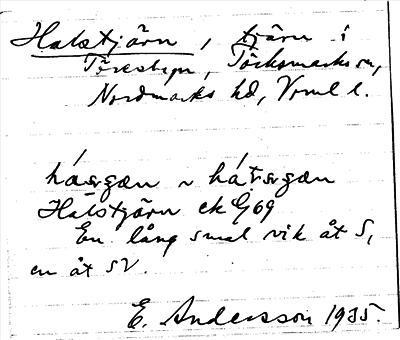 Halstjärn, tjärn i
Töresbyn, Töcksmarks sn,
Nordmarks hd, Vrml l.
hásgæn ~ hátsgæn
Halstjärn ek G 69
En lång smal vik åt S,
en åt SV.
E. Andersson 1935.